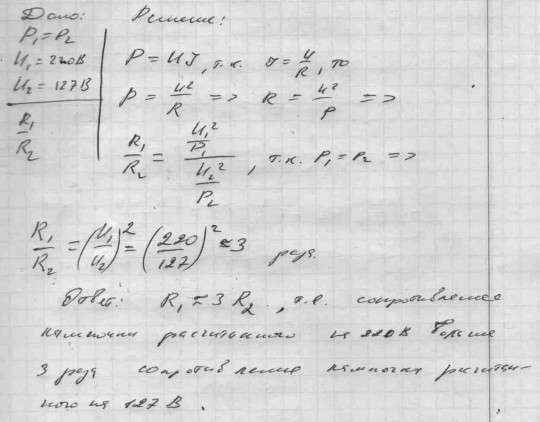 Дано: Решение:
P₁ = P₂
U₁ = 220В
U₂ = 127В
R₁/R₂
P = UJ, т.к. J = U/R, то
P = U²/R => R = U²/P =>
R₁/R₂ = (U₁²/P₁)/(U₂²/P₂), т.к. P₁ = P₂ =>
R₁/R₂ = (U₁/U₂)² = (220/127)² ≈ 3 раза.
Ответ: R₁ ≈ 3 R₂, т.е. сопротивление
лампочки расчитанного на 220В больше
3 раза сопротивления лампочки расчитан-
ного на 127В.